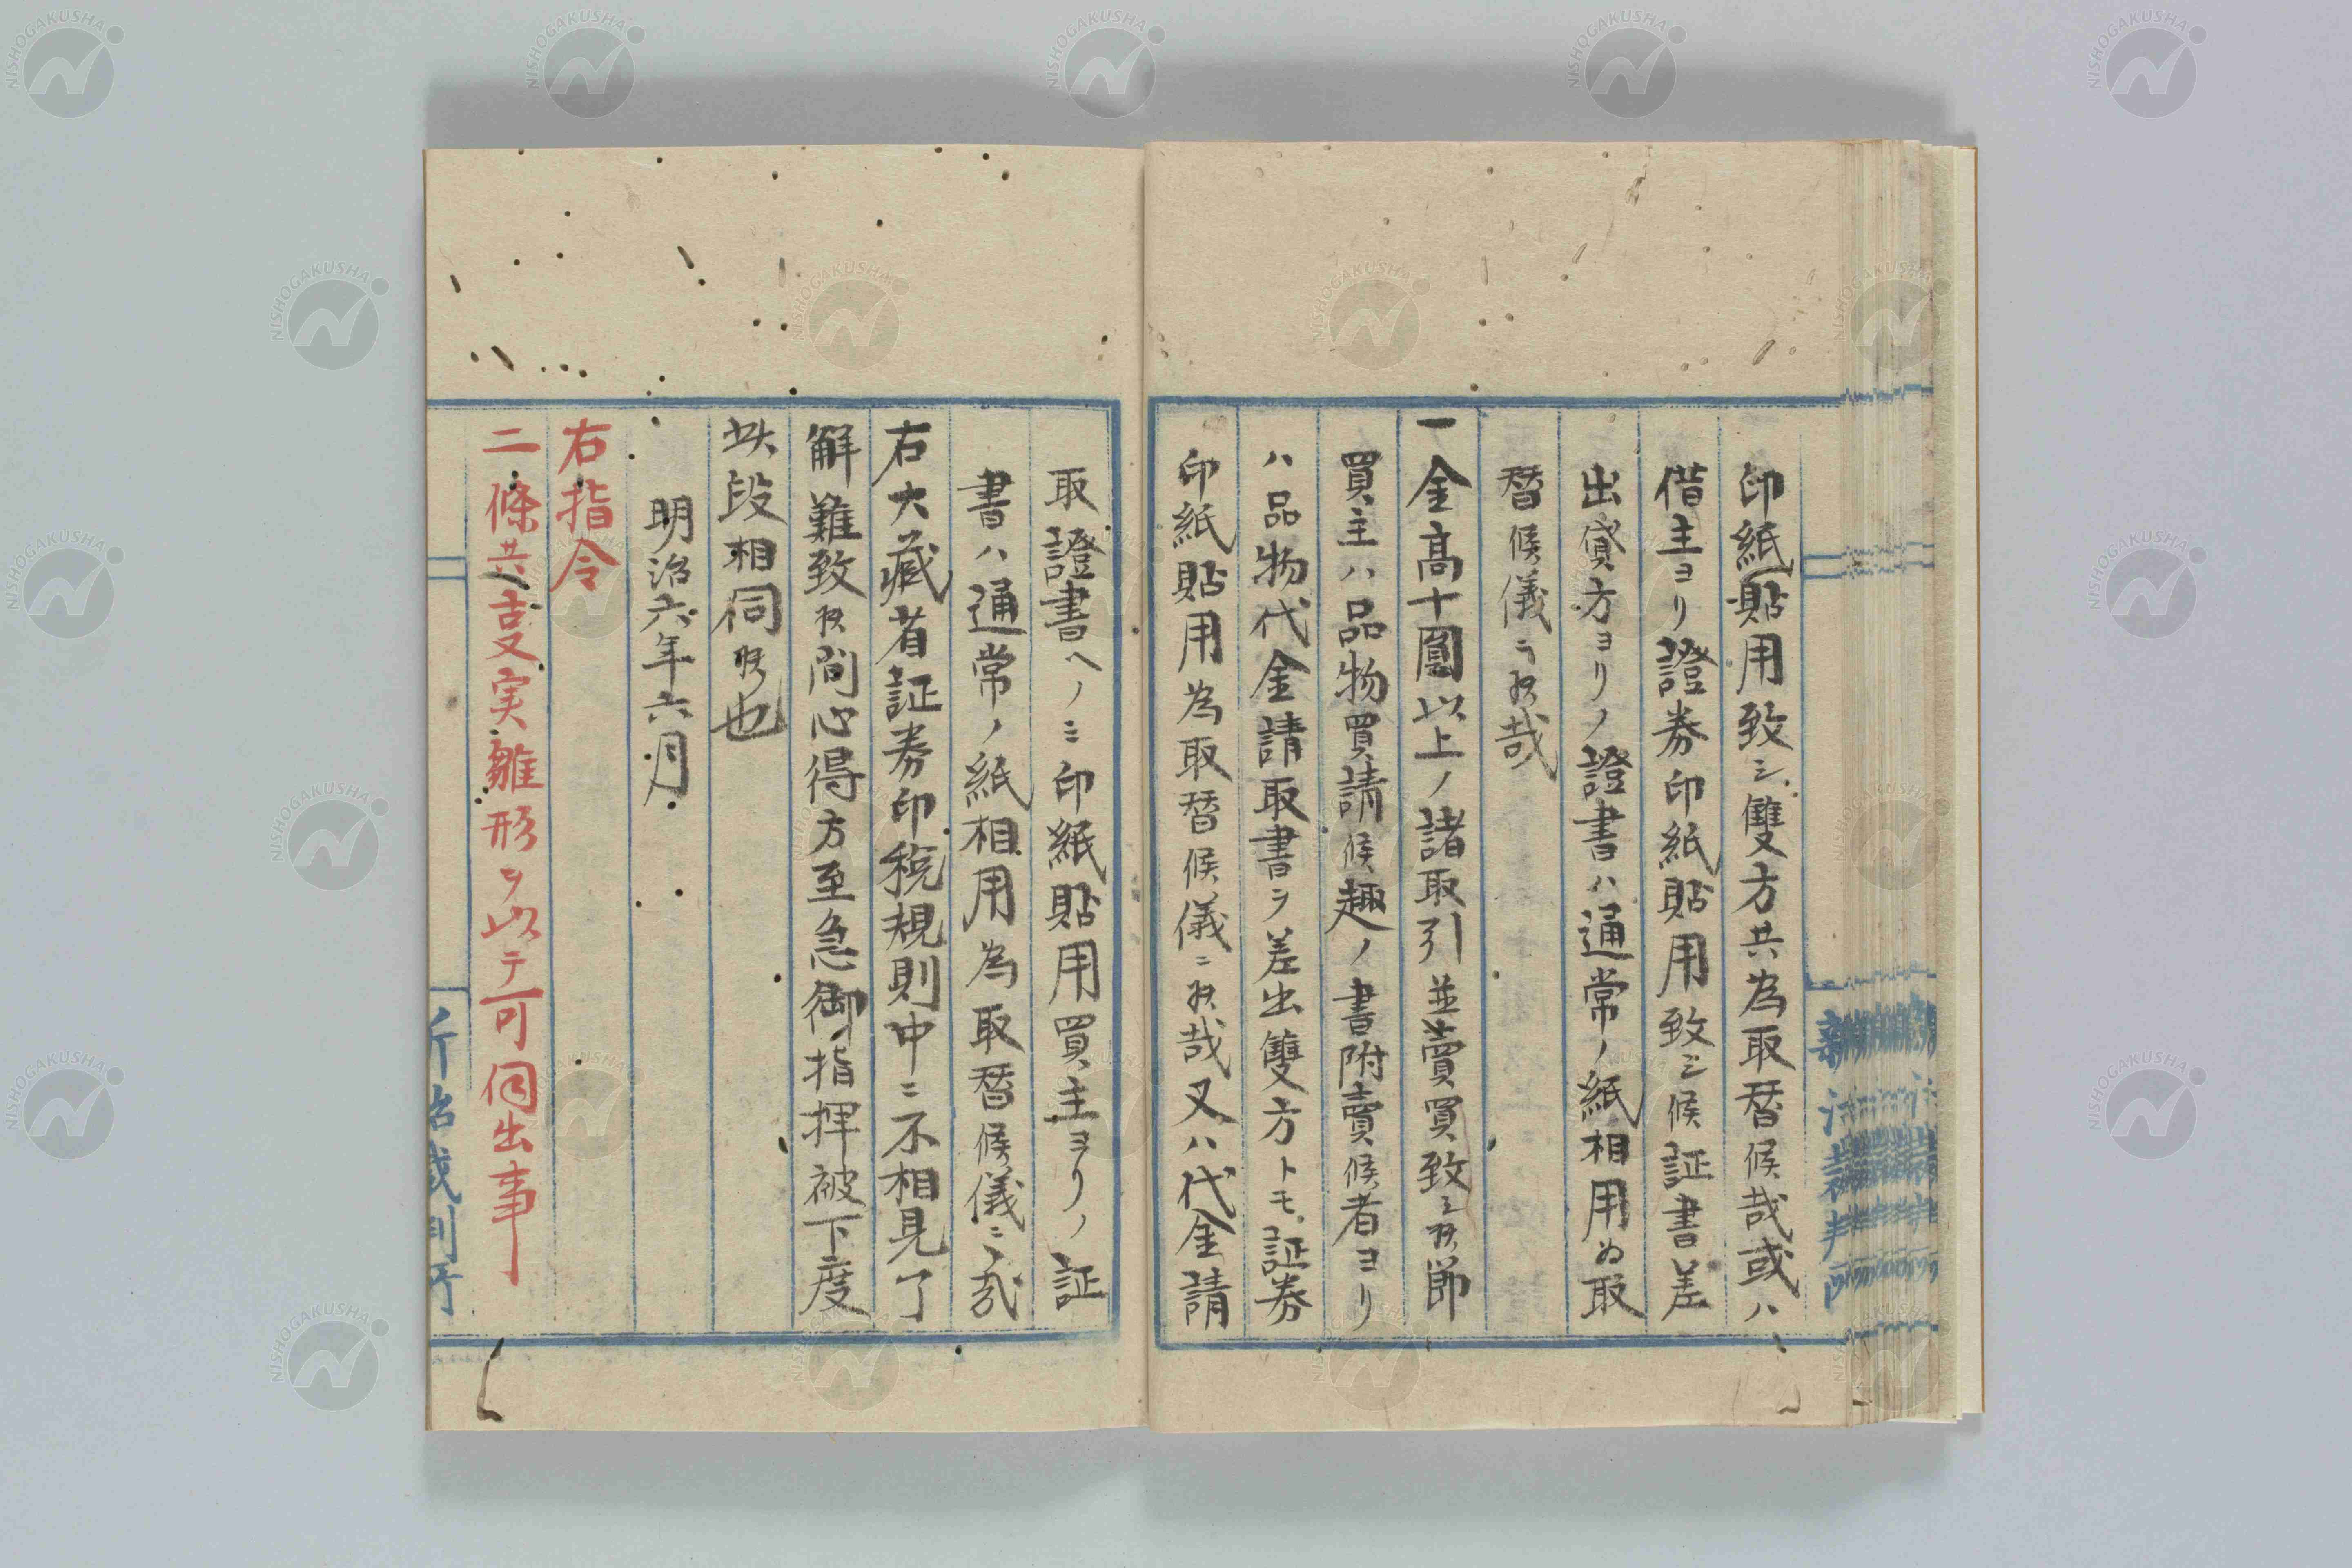 印紙貼用致シ雙方共為取替候哉或ハ
借主ヨリ證券印紙貼用致シ候証書差
出貸方ヨリノ證書ハ通常ノ紙相用為取
替候儀ニ候哉
一金高十圓以上ノ諸取引並賣買致シ候節
買主ハ品物買請候趣ノ書附賣候者ヨリ
ハ品物代金請取書ヲ差出雙方トモ証券
印紙貼用為取替候儀ニ候哉又ハ代金請
取證書ヘノミ印紙貼用買主ヨリノ証
書ハ通常ノ紙相用為取替候儀ニ候哉
右大藏省証券印税規則中ニ不相見了
解難致候間心得方至急御指揮被下度
此段相伺候也
明治六年六月
右指令
二條共吉凶実雛形ヲ以テ可伺出事
新治裁判所
NISHOGAKUSHA